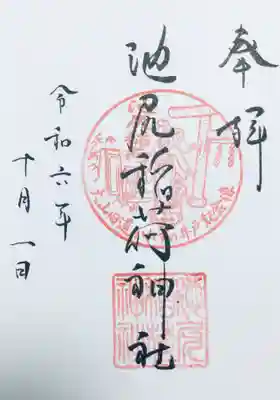 奉拝
池尻稲荷神社
令和六年
十月一日